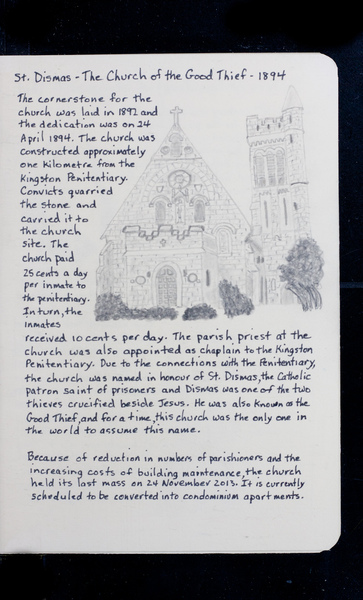 St. Dismas - The Church of the Good Thief - 1894
The cornerstone for the
church was laid in 1892 and
the dedication was on 24
April 1894. The church was
constructed approximately
one Kilometre from the
Kingston Penitentiary.
Convicts quarried
the stone and
carried it to
the church
site. The
church paid
25 cents a day
per inmate to
the penitentiary.
In turn, the
inmates
received 10 cents per day. The parish priest at the
church was also appointed as chaplain to the Kingston
Penitentiary. Due to the connections with the Penitentiary,
the church was named in honour of St. Dismas, the Catholic
patron saint of prisoners and Dismas was one of the two
thieves crucified beside Jesus. He was also Known as the
Good Thief, and for a time, this church was the only one in
the world to assume this name.
Because of reduction in numbers of parishioners and the
increasing costs of building maintenance, the church
held its last mass on 24 November 2013. It is currently
scheduled to be converted into condominium apartments.